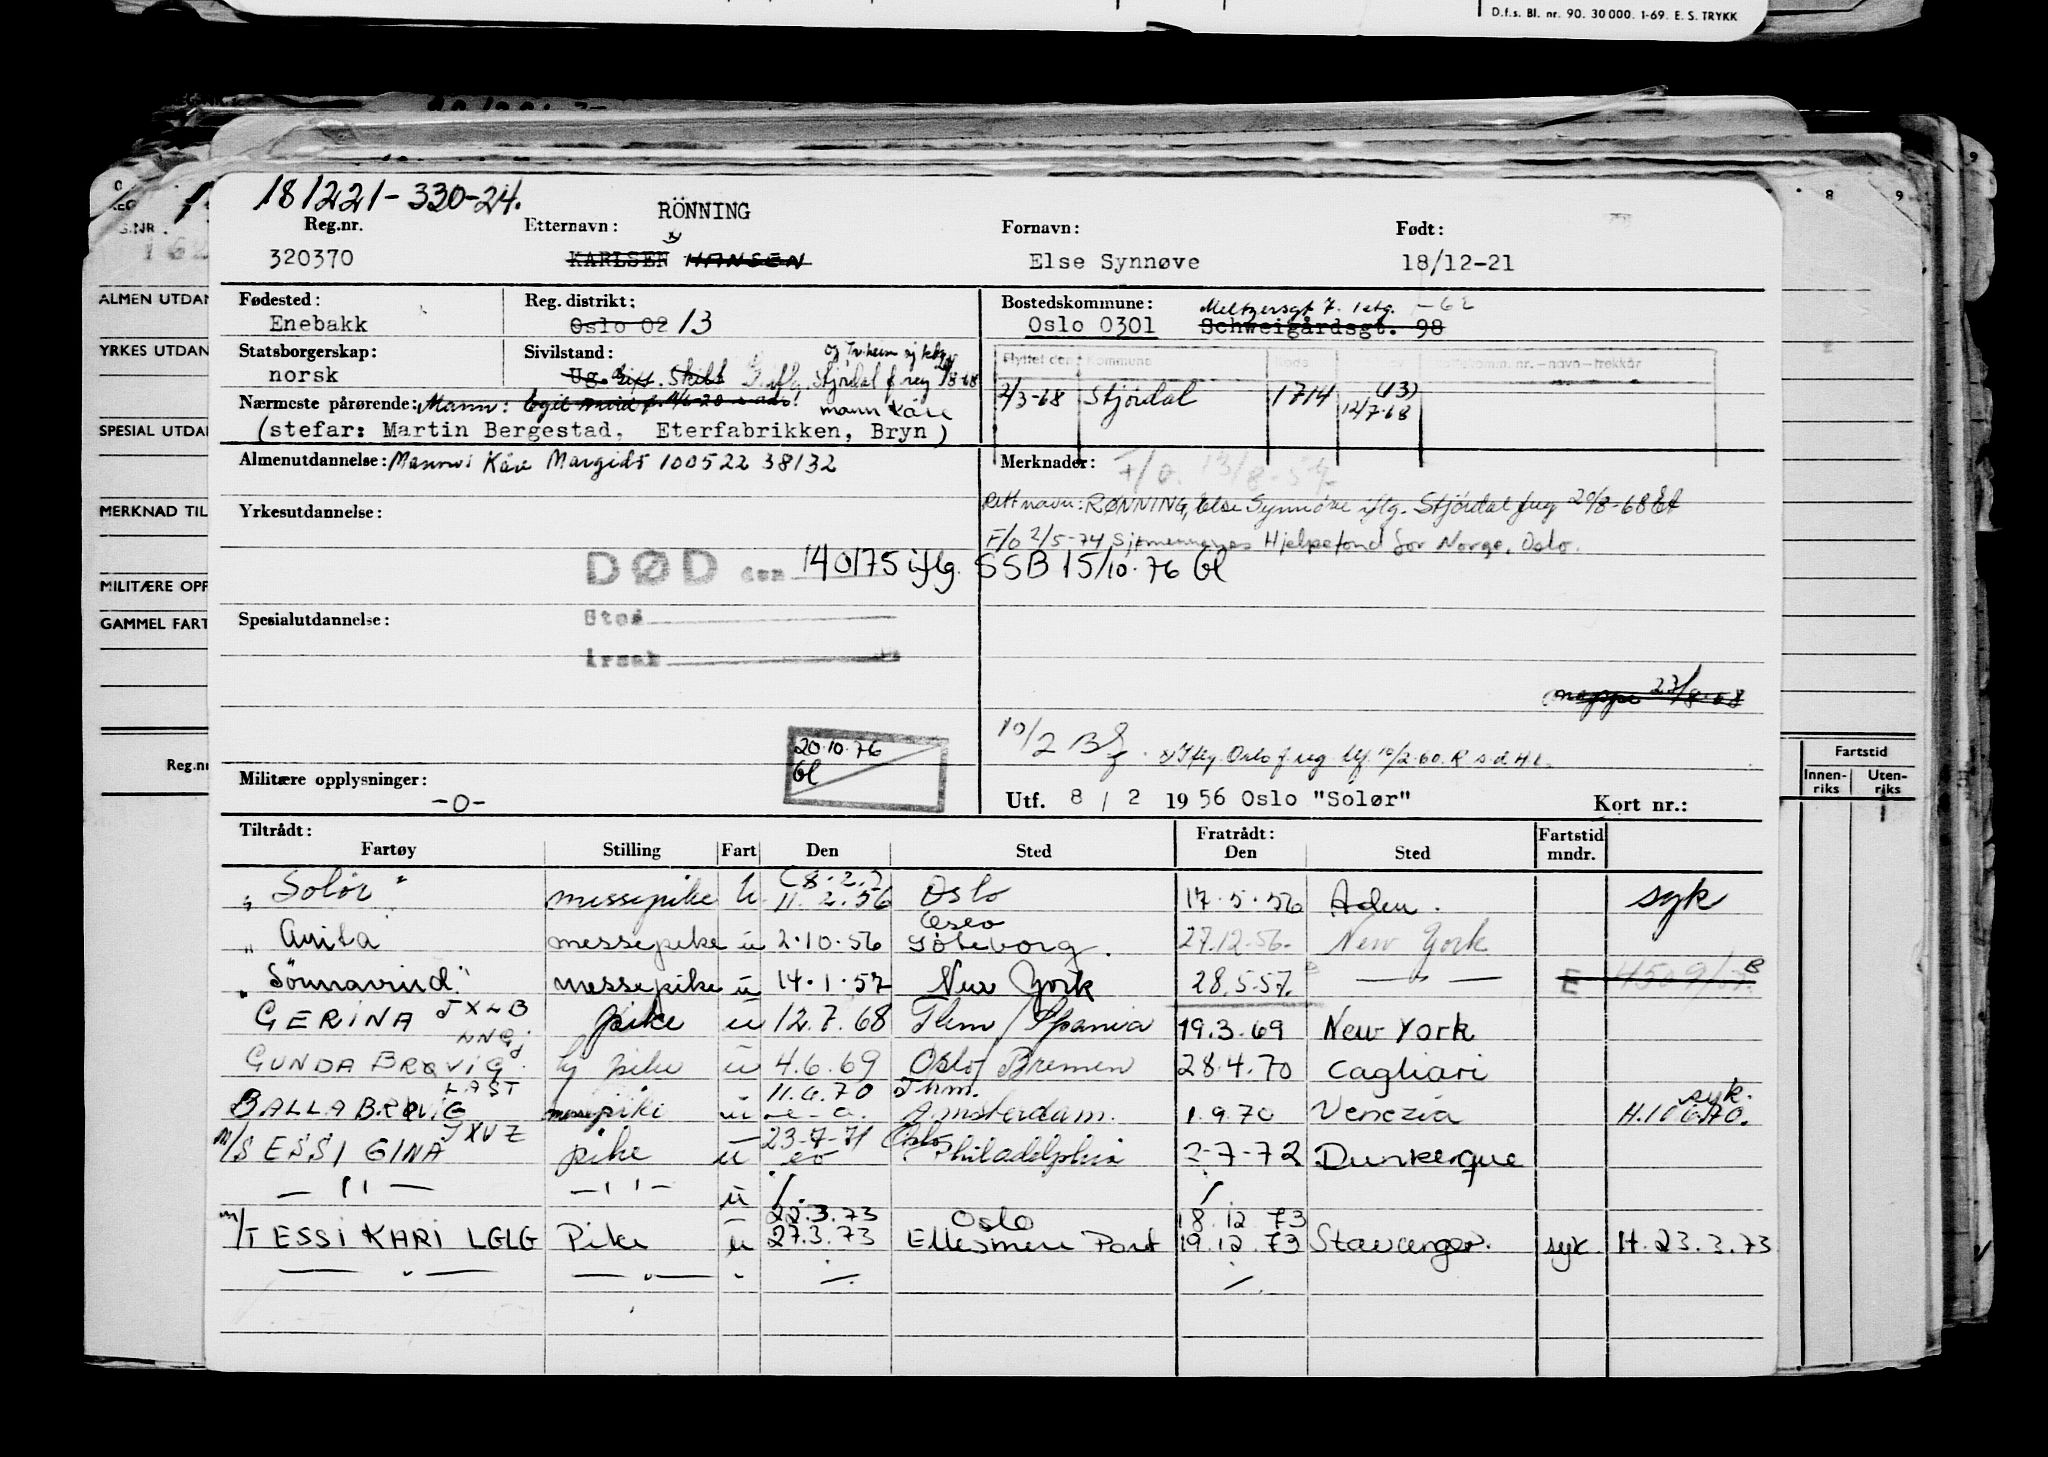 D.f.s. Bl. nr. 90. 30 000. 1-69. E. S. TRYKK
181221-330-24.
RÖNNING
Reg.nr. Etternavn: Fornavn: Født:
320370 KARLSEN HANSEN Else Synnøve 18/12-21
Fødested: Reg. distrikt: Bostedskommune: Meltzersgt 7. 1 etg. -62
Enebakk Oslo 02 13 Oslo 0301 Schweigårdsgt. 98
Statsborgerskap: Sivilstand:
norsk Ug. Gift. Skilt Gift Stjørdal f reg
Flyttet den Kommune Kode
Nærmeste pårørende: Mann: mann Kåre
2/3-68 Stjördal 1714 (13) 12/7-68
(stefar: Martin Bergestad, Eterfabrikken, Bryn)
Almenutdannelse: Mann: Kåre Margido 100522 38132
Merknader: F/o. 13/8-57
Rett navn: RØNNING, Else Synnöve iflg. Stjördal freg 20/8-68
Yrkesutdannelse:
F/o 2/5-74 Sjømennenes Hjelpefond for Norge, Oslo.
DØD den 140175 iflg. SSB 15/10-76 Gl
Spesialutdannelse:
Sted
Årsak
mappe 23/8-68
10/2 B
20.10.76
Gl
x) Iflg. Oslo f reg 10/2-60.
Militære opplysninger:
-0-
Utf. 8 / 2 1956 Oslo "Solør" Kort nr.:
Tiltrådt: Fratrådt: Fartstid
Fartøy Stilling Fart Den Sted Den Sted mndr.
"Solör" messepike U (8.2.) 11.2.56 Oslo 17.5.56 Aden. syk
" Anita messepike u 2.10.56 Oslo Göteborg. 27.12.56. New York
"Sönnavind" messepike u 14.1.57 New York 28.5.57. — " — E
GERINA JXLB pike u 12.7.68 Thm/Spania 19.3.69 New York
GUNDA BRØVIG LNGJ pike u 4.6.69 Oslo/Bremen 28.4.70 Cagliari
BALLA BRØVIG LAST messepike u 11.6.70 Thm. Amsterdam. 1.9.70 Venezia syk. H.10670.
M/S ESSI GINA JXVZ pike u 23-7-71 Oslo Philadelphia 2-7-72 Dunkerque
— " — — " — u /. /
M/T ESSI KARI LGLG Pike u 22.3.73 27.3.73 Oslo Ellesmere Port 18.12.73 19.12.73 Stavanger. syk H.23.3.73
— " — — " — - /. /.
ALMEN UTDAN
YRKES UTDAN
SPESIAL UTDAN
MERKNAD TIL
MILITÆRE OPP
GAMMEL FART
Reg.nr
8 9
Fartstid
Innen-riks Uten-riks